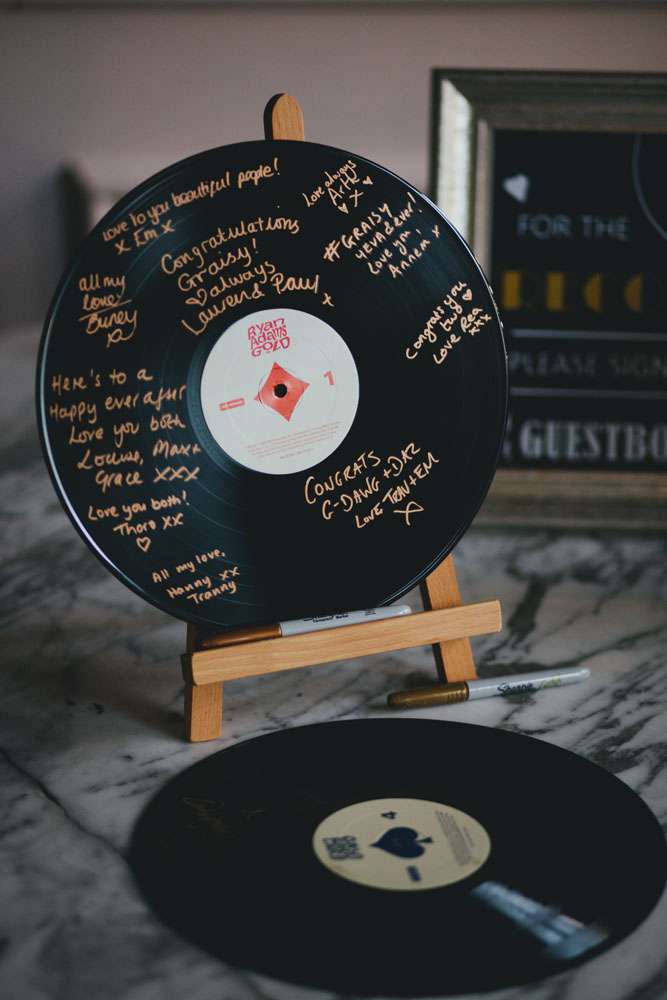 Love to you beautiful people!
x Em x
Love always
Art
x
Congratulations
Graisy!
always
Laurens Paul x
#GRAISY
4EVA&EVER!
Love you,
Annem x
all my
Love
Buney
x
Congrats you
bud
Love Rea
xxx
Ryan
Adams
GOLD
1
Here's to a
Happy ever after
Love you both
Louise, Max+
Grace xxx
Love you both!
Thoro xx
CONGRATS
G-DAWG + DAZ
Love TRAV+EM
X
All my love,
Hanny xx
Tranny
Sharpie
4
FOR THE
RECO
PLEASE SIGN
GUESTBO